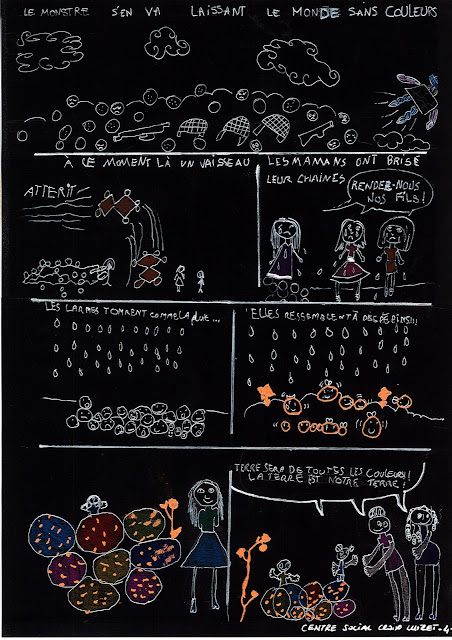 LE MONSTRE S'EN VA LAISSANT LE MONDE SANS COULEURS
À CE MOMENT LÀ UN VAISEAU
ATTERIT
LES MAMANS ONT BRISÉ
LEUR CHAINES
RENDEZ-NOUS
NOS FILS!
LES LARMES TOMBENT COMME LA PLUIE...
ELLES RESSEMBLENT À DES PÉPINS!!!
TERRE SERA DE TOUTES LES COULEURS!
LA TERRE EST NOTRE TERRE!
CENTRE SOCIAL